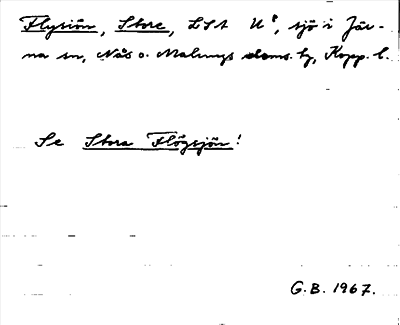 Flysiön, Store, LSA U⁸, sjö i Jär-
na sn, Nås o. Malungs doms. hg, Kopp. l.
Se Stora Flögsjön!
G.B. 1967.